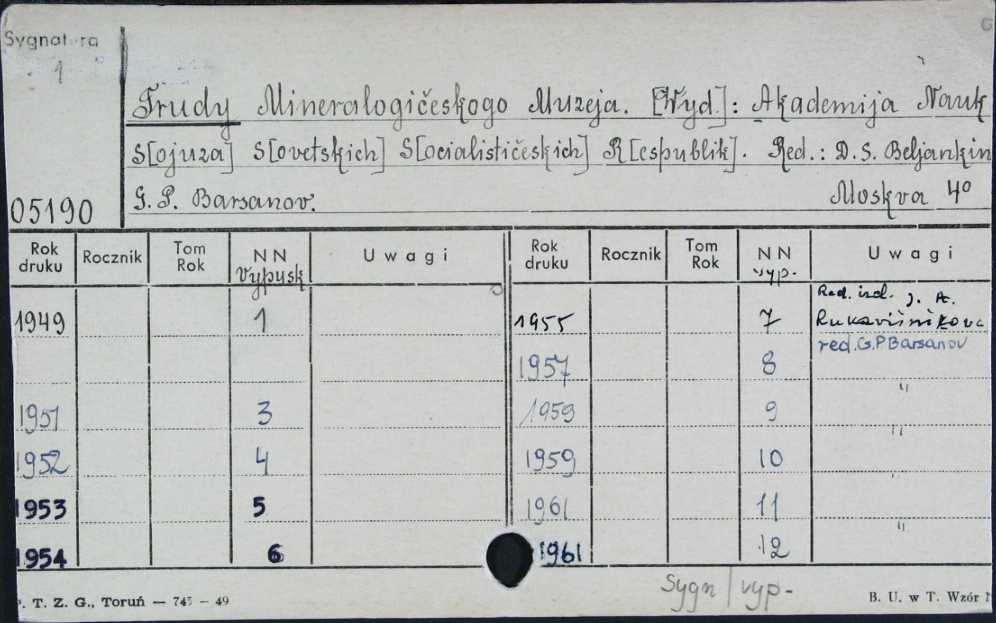 Sygnatura
1
Trudy Mineralogičeskogo Muzeja. [Wyd.]: Akademija Nauk
S[ojuza] S[ovetskich] S[ocialističeskich] R[espublik]. Red.: D. S. Beljankin
05190 G. P. Barsanov. Moskva 4º
Rok druku Rocznik Tom Rok NN Vypusk Uwagi Rok druku Rocznik Tom Rok NN vyp. Uwagi
Red. izd. J. A.
1949 1 1955 7 Rukavišnikova
red. G.P Barsanov
1957 8 "
1951 3 1959 9 "
1952 4 1959 10 "
1953 5 1961 11 "
1954 6 1961 12
Sygn / vyp.-
P. T. Z. G., Toruń — 745 — 49 B. U. w T. Wzór